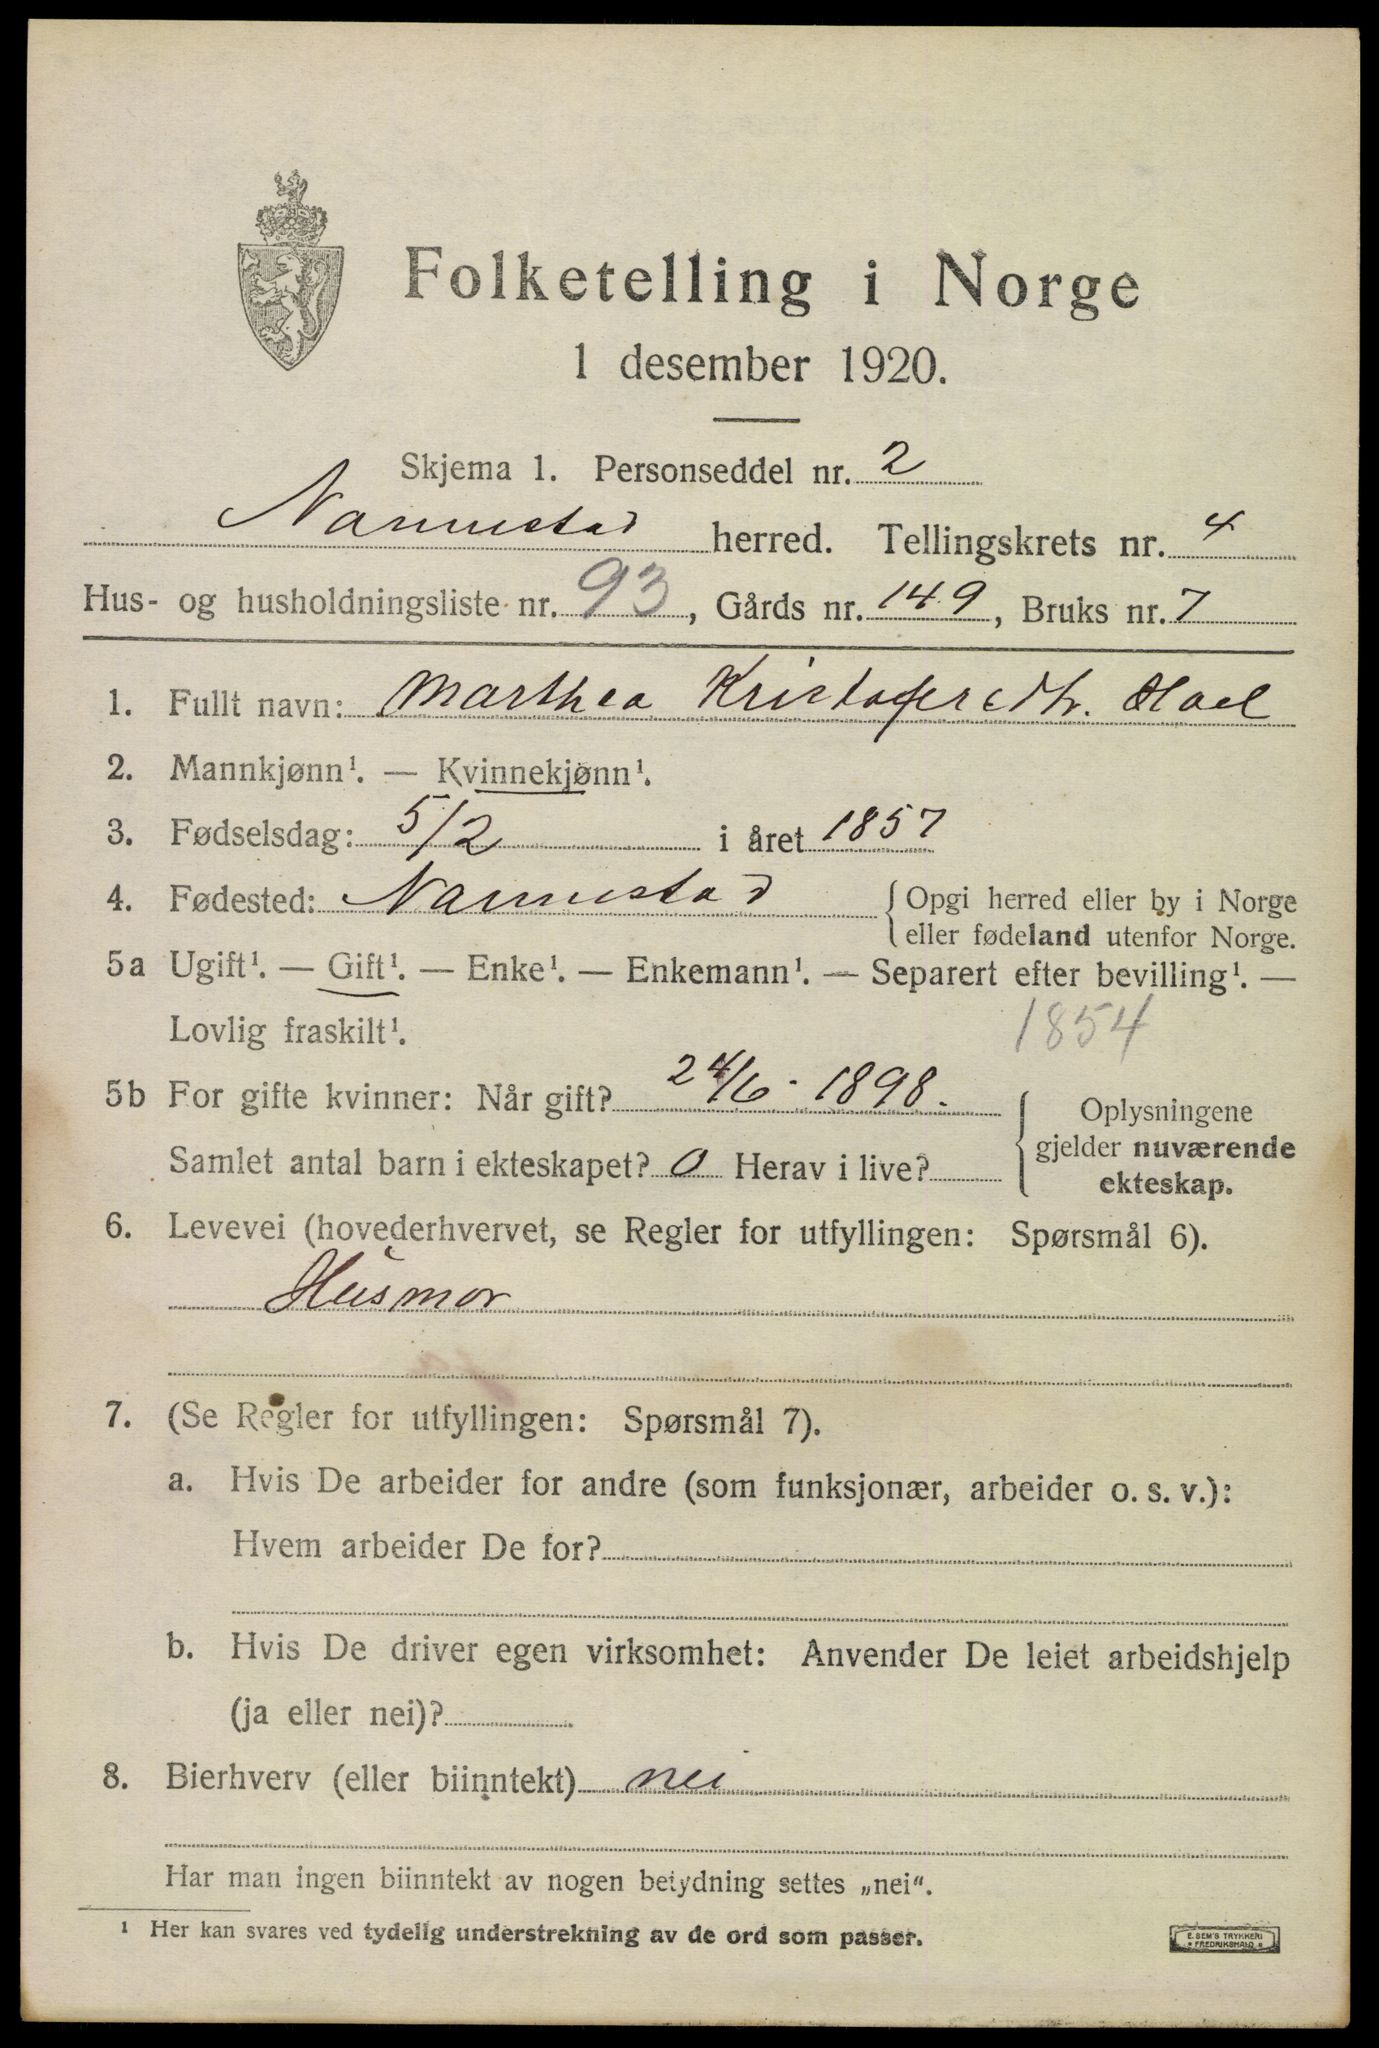 Folketelling i Norge
1 desember 1920.
Skjema 1. Personseddel nr. 2
Nannestad herred. Tellingskrets nr. 4
Hus- og husholdningsliste nr. 93, Gårds nr. 149, Bruks nr. 7
1. Fullt navn: Marthea Kristofersdtr. Hoel
2. Mannkjønn¹. — Kvinnekjønn¹.
3. Fødselsdag: 5/2 i året 1857
4. Fødested: Nannestad { Opgi herred eller by i Norge
eller fødeland utenfor Norge.
5a Ugift¹. — Gift¹. — Enke¹. — Enkemann¹. — Separert efter bevilling¹. —
Lovlig fraskilt¹. 1854
5b For gifte kvinner: Når gift? 24/6 - 1898.
Samlet antal barn i ekteskapet? 0 Herav i live?
{ Oplysningene
gjelder nuværende
ekteskap.
6. Levevei (hovederhvervet, se Regler for utfyllingen: Spørsmål 6).
Husmor
7. (Se Regler for utfyllingen: Spørsmål 7).
a. Hvis De arbeider for andre (som funksjonær, arbeider o. s. v.):
Hvem arbeider De for?
b. Hvis De driver egen virksomhet: Anvender De leiet arbeidshjelp
(ja eller nei)?
8. Bierhverv (eller biinntekt) nei
Har man ingen biinntekt av nogen betydning settes „nei“.
¹ Her kan svares ved tydelig understrekning av de ord som passer.
E. SEM'S TRYKKERI
FREDRIKSHALD